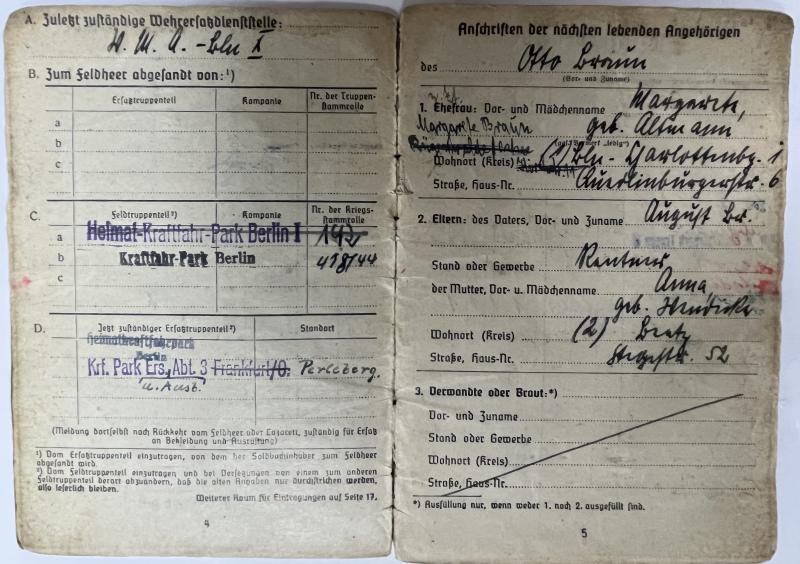 A. Zuletzt zuständige Wehrersatzdienststelle:
W. M. A. - Bln X
B. Zum Feldheer abgesandt von:¹)
Ersatztruppenteil
Kompanie
Nr. der Truppen-
stammrolle
a
b
c
C.
Feldtruppenteil²)
Kompanie
Nr. der Kriegs-
stammrolle
a Heimat-Kraftfahr-Park Berlin I 192
b Kraftfahr-Park Berlin 418/44
c
D.
Jetzt zuständiger Ersatztruppenteil²)
Standort
Heimatkraftfahrpark
Berlin
Krf. Park Ers. Abt. 3 Frankfurt/O. Perleberg.
u. Ausb.
(Meldung dortselbst nach Rückkehr vom Feldheer oder Lazarett, zuständig für Ersatz
an Bekleidung und Ausrüstung)
¹) Vom Ersatztruppenteil einzutragen, von dem der Soldbuchinhaber zum Feldheer
abgesandt wird.
²) Vom Feldtruppenteil einzutragen und bei Versetzungen von einem zum anderen
Feldtruppenteil derart abzuändern, daß die alten Angaben nur durchstrichen werden,
also leserlich bleiben.
Weiterer Raum für Eintragungen auf Seite 17.
4
Anschriften der nächsten lebenden Angehörigen
des Otto Braun
(Vor- und Zuname)
1. Ehefrau: Vor- und Mädchenname Margarete,
Margarete Braun geb. Altmann
Wohnort (Kreis) (2) Bln - Charlottenbg. 1
Straße, Haus-Nr. Quedlinburgerstr. 6
2. Eltern: des Vaters, Vor- und Zuname August Br.
Stand oder Gewerbe Rentner
der Mutter, Vor- u. Mädchenname Anna,
geb.
Wohnort (Kreis) (2)
Straße, Haus-Nr. 52
3. Verwandte oder Braut:*)
Vor- und Zuname
Stand oder Gewerbe
Wohnort (Kreis)
Straße, Haus-Nr.
*) Ausfüllung nur, wenn weder 1. noch 2. ausgefüllt sind.
5